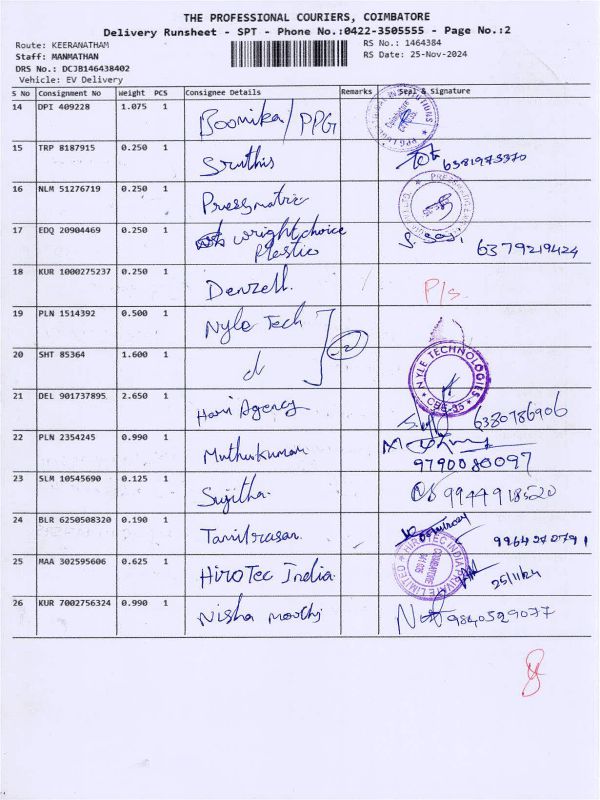 THE PROFESSIONAL COURIERS, COIMBATORE
Delivery Runsheet - SPT - Phone No.:0422-3505555 - Page No.:2
Route: KEERANATHAM
RS No.: 1464384
Staff: MANMATHAN
RS Date: 25-Nov-2024
DRS No.: DCJB146438402
Vehicle: EV Delivery
S No Consignment No Weight PCS Consignee Details Remarks Seal & Signature
14 DPI 409228 1.075 1 Boomika/PPG
15 TRP 8187915 0.250 1 Sruthis 6381973370
16 NLM 51276719 0.250 1 Pressmatric
17 EDQ 20904469 0.250 1 wrightchoice Plastic 6379219424
18 KUR 1000275237 0.250 1 Denzell. P/s
19 PLN 1514392 0.500 1 Nyle Tech
20 SHT 85364 1.600 1 d 2 NYLE TECHNOLOGIES CBE-35
21 DEL 901737895 2.650 1 Hari Agency 6380786906
22 PLN 2354245 0.990 1 Muthukumar 9790080097
23 SLM 10545690 0.125 1 Sujitha. 9944918520
24 BLR 6250508320 0.190 1 Tamilrasan 9964370791
25 MAA 302595606 0.625 1 HiroTec India HIROTEC INDIA PRIVATE LIMITED COIMBATORE 641 035 25/11/24
26 KUR 7002756324 0.990 1 Nisha moorthi 9840529077